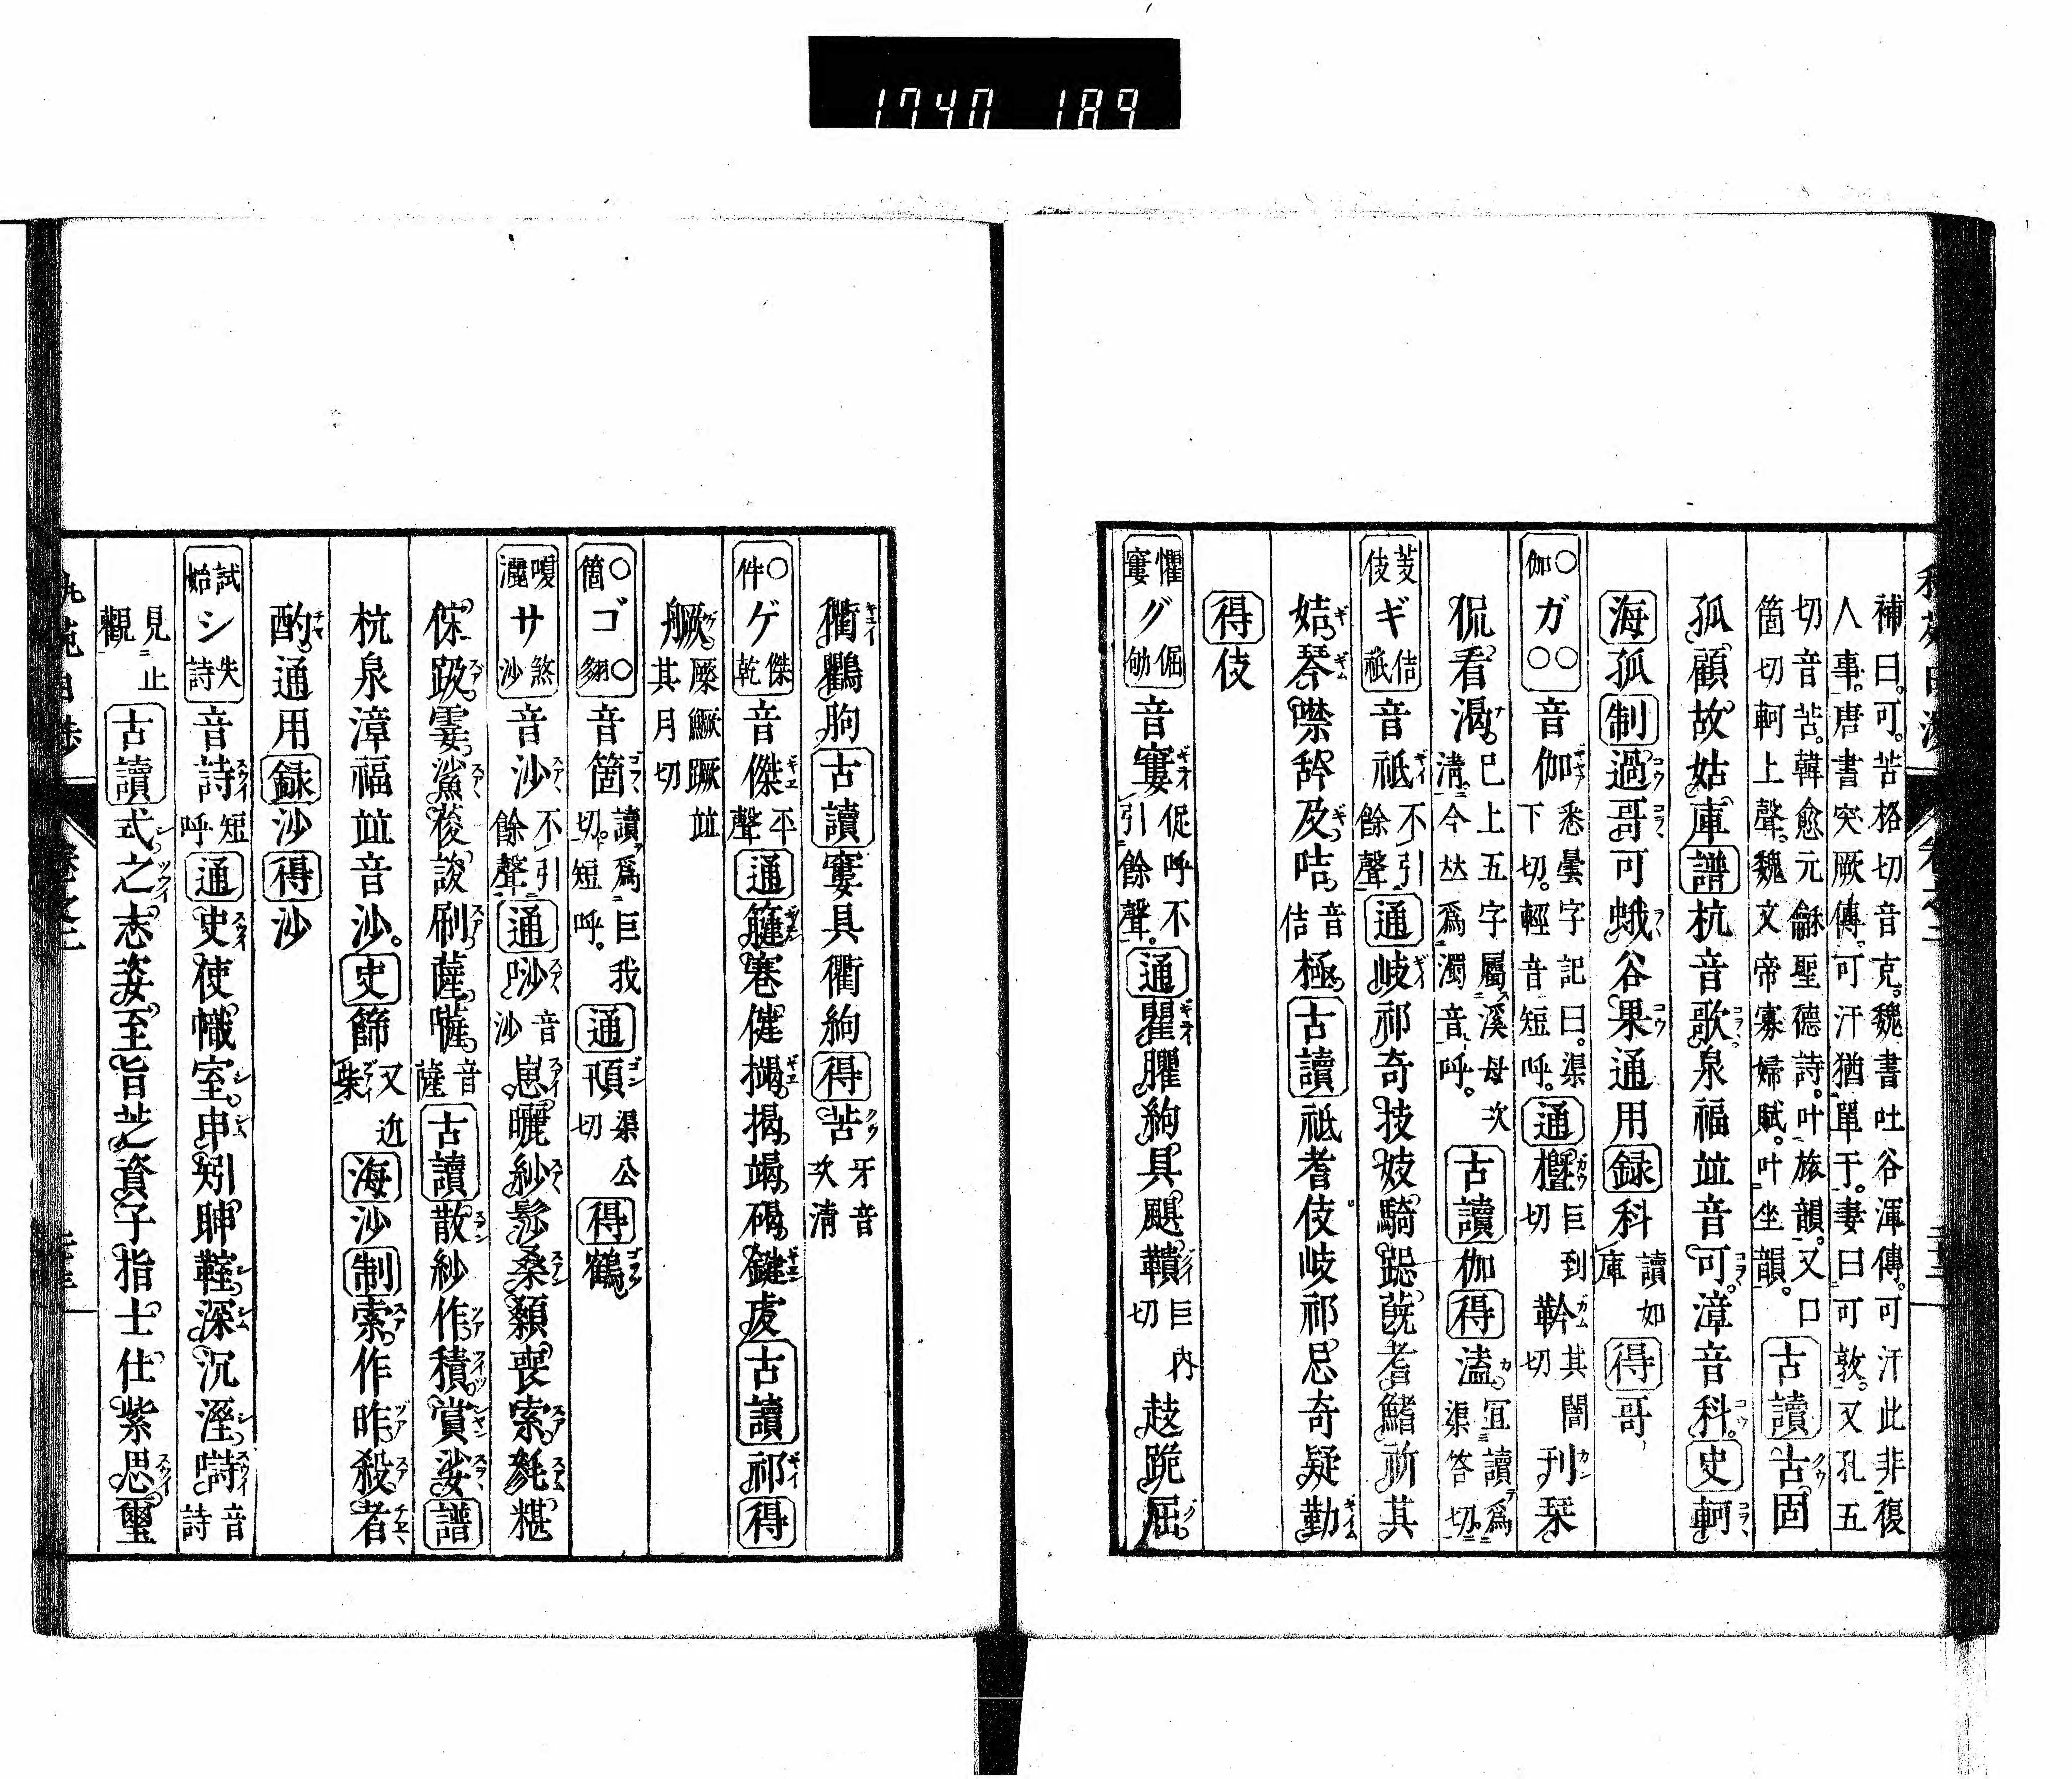 1740 189
補曰。可。苦格切音克。魏書吐谷渾傳。可汗此非復
人事。唐書突厥傳。可汗猶單于。妻曰可敦。又孔五
切音苦。韓愈元龢聖德詩。叶旅韻。又口
箇切軻上聲。魏文帝寡婦賦。叶坐韻。
古讀古固
孤顧故姑庫譜杭音歌泉福並音可。漳音科。史軻
海孤制過哥可蛾谷果通用録科讀如庫得哥
○伽ガ○○音伽悉曇字記曰。渠下切。輕音短呼。通𣖙巨到切軡其闇切刋栞
侃看渴。已上五字屬溪母次清今厸爲濁音呼。古讀伽得溘宜讀爲渠答切。
芰伎ギ佶祇音祇不引餘聲通岐祁奇技妓騎跽蔇耆鰭祈其
姞琴噤䛒及咭音佶極古讀祇耆伎岐祁忌奇疑勤
得伎
懼窶グ倔劬音窶促呼不引餘聲。通瞿臞絇具颶鞼巨内切趌跪屈
衢鸜朐古讀窶具衢絢得苦牙音次清
○件ゲ傑乾音傑平聲通䈑寋健擖揭竭碣鍵虔古讀祁得
橛㮮鱖蹶並其月切
○箇ゴ○音箇讀爲巨我切。短呼。通頇渠公切得鶴
嗄灑サ煞沙音沙不引餘聲通唦音沙崽曬紗髿桑顙喪索毵糂
傢趿霎鯊菨䛽刷薩囃音薩古讀散紗作積賞娑譜
杭泉漳福並音沙。史篩又近柴海沙制索作昨殺者
酌通用録沙得沙
試始シ失詩音詩短呼通史使幟室申矧胂䩶深沉溼䛡音詩
見止觀古讀式之志恣至旨芝資子指士仕紫思璽